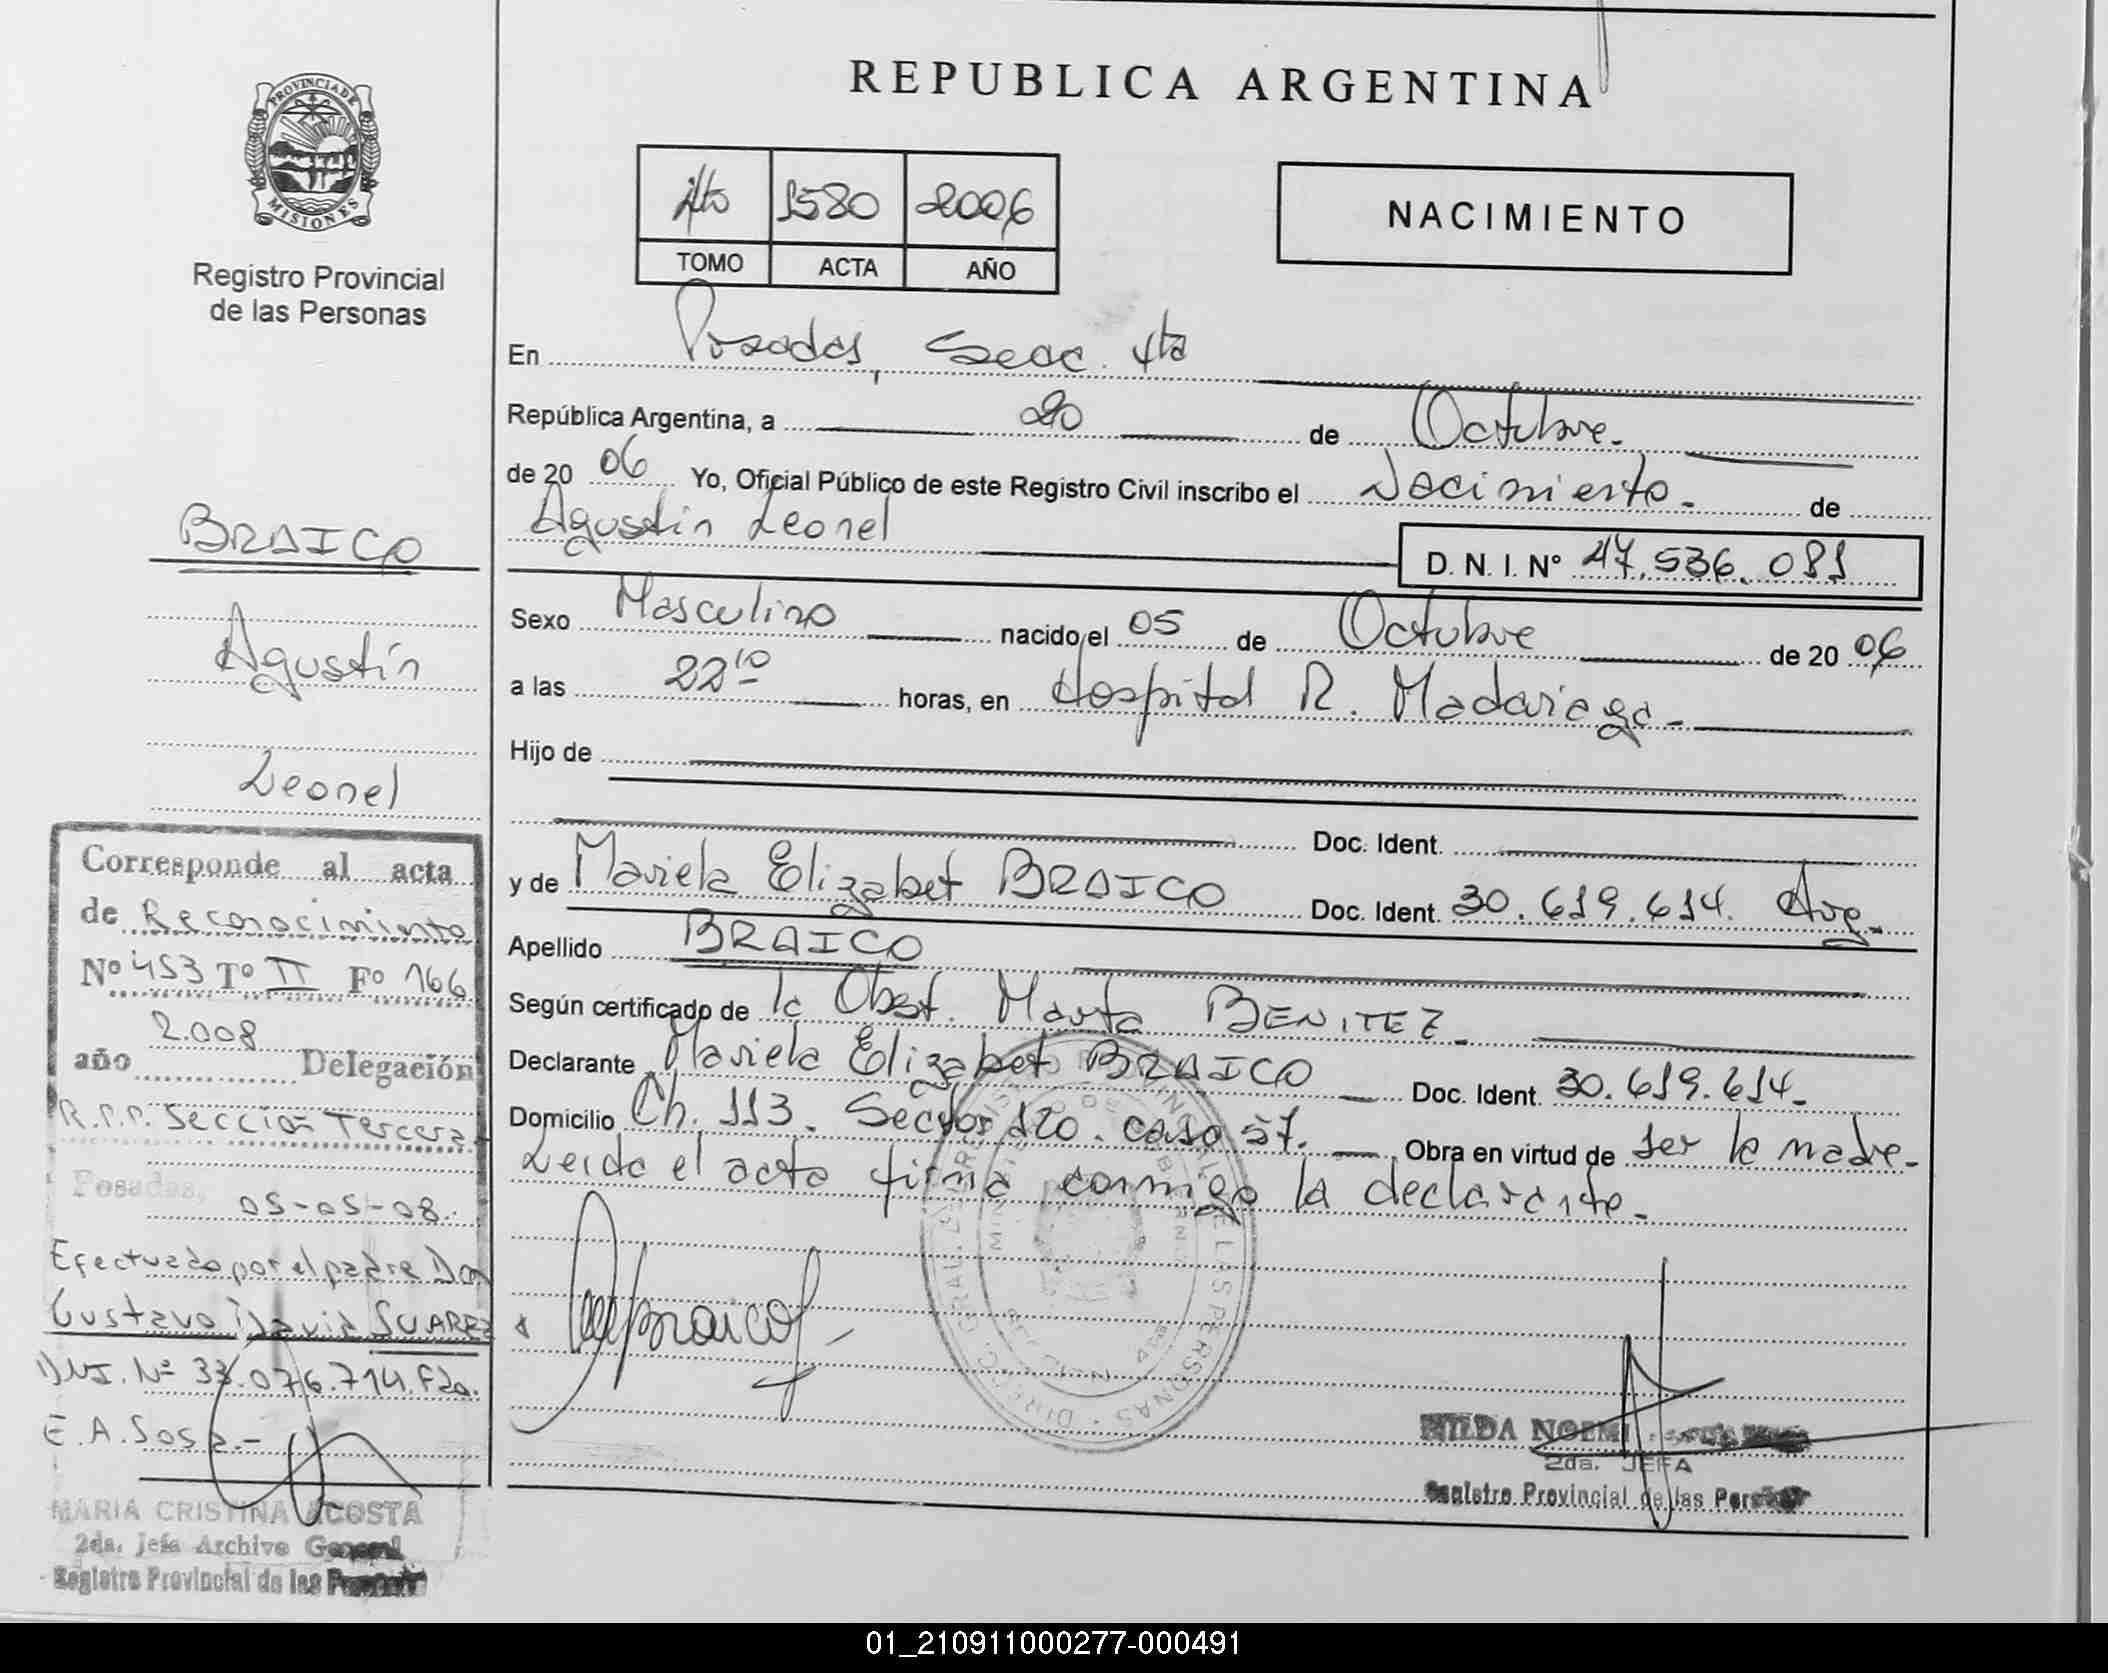 PROVINCIA DE
MISIONES
Registro Provincial
de las Personas
BRAICO
Agustín
Leonel
Corresponde al acta
de Reconocimiento
Nº 453 Tº II Fº 166
2.008
año Delegación
R.P.P. Sección Tercera
Posadas,
05-05-08.
Efectuado por el padre Don
Gustavo David SUAREZ
DNI. Nº 33.076.714. Fdo.
E. A. Sosa.-
MARIA CRISTINA ACOSTA
2da. Jefa Archivo General
Registro Provincial de las
REPUBLICA ARGENTINA
4to 1580 2006
TOMO ACTA AÑO
NACIMIENTO
En Posadas, Secc. 4ta
República Argentina, a 20 de Octubre.
de 20 06 Yo, Oficial Público de este Registro Civil inscribo el Nacimiento. de
Agustín Leonel
D. N. I. Nº 47.536.081
Sexo Masculino nacido el 05 de Octubre de 20 06
a las 22 10 horas, en Hospital R. Madariaga
Hijo de
Doc. Ident.
y de Mariela Elizabet BRAICO Doc. Ident. 30.619.614. Arg.
Apellido BRAICO
Según certificado de la Obst. Marta BENITEZ.
Declarante Mariela Elizabet BRAICO Doc. Ident. 30.619.614.
Domicilio Ch. 113. Sector 120. casa 57. Obra en virtud de ser la madre.
Leida el acta firma conmigo la declarante.
HILDA NOEMI
2da. JEFA
Registro Provincial de las
01_210911000277-000491